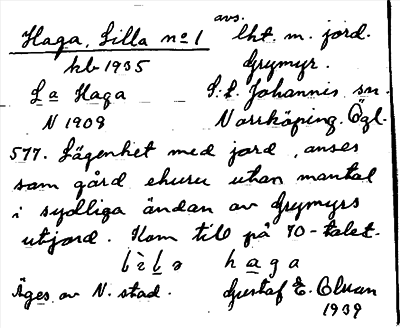 avs.
Haga, Lilla no 1 lht. m. jord.
kb 1935 Grymyr.
La Haga S:t Johannis sn.
N 1908 Norrköping. Ögl.
577. Lägenhet med jord, anses
som gård ehuru utan mantal
i sydliga ändan av Grymyrs
utjord. Kom till på 70-talet.
haga
Äges av N. stad. Gustaf E. Cluan
1939